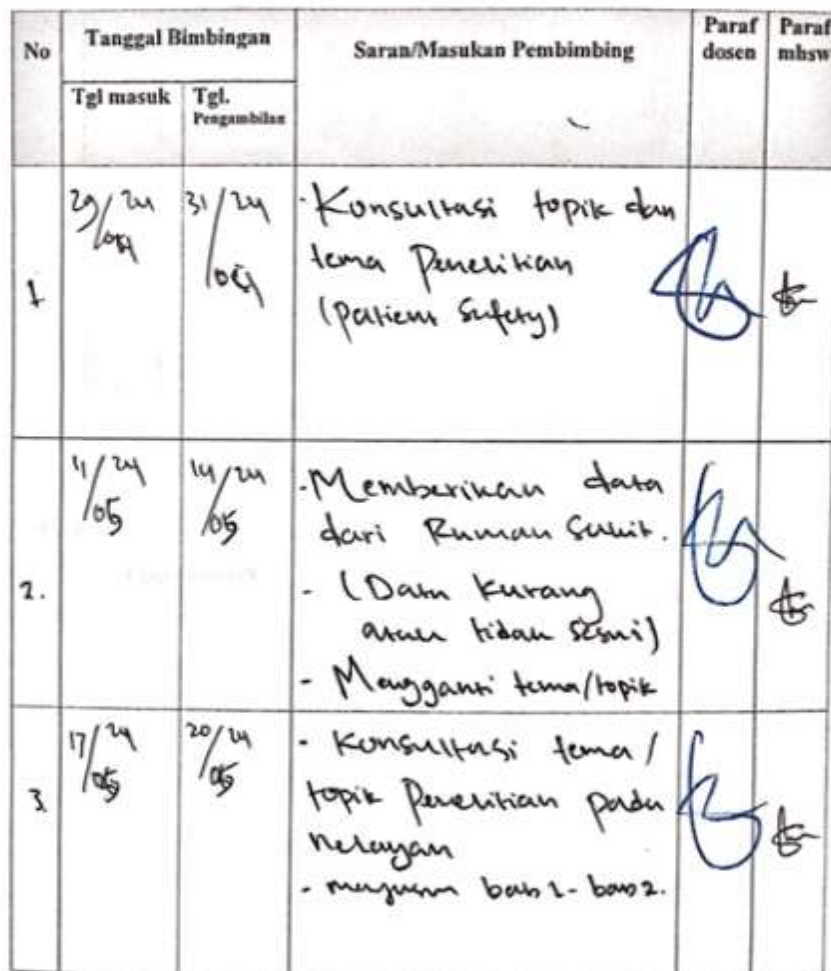 No Tanggal Bimbingan Saran/Masukan Pembimbing Paraf dosen Paraf mhsw
Tgl masuk Tgl. Pengambilan
1 29/24 31/24 - Konsultasi topik dan
tema Penelitian
(Patient Safety)
2. 11/24 05 14/24 05 - Memberikan data
dari Rumah Sakit.
- (Data kurang
atau tidak sesuai)
- Mengganti tema/topik
3 17/24 05 20/24 05 - Konsultasi tema/
topik Penelitian pada
nelayan
- bab 1 - bab 2.